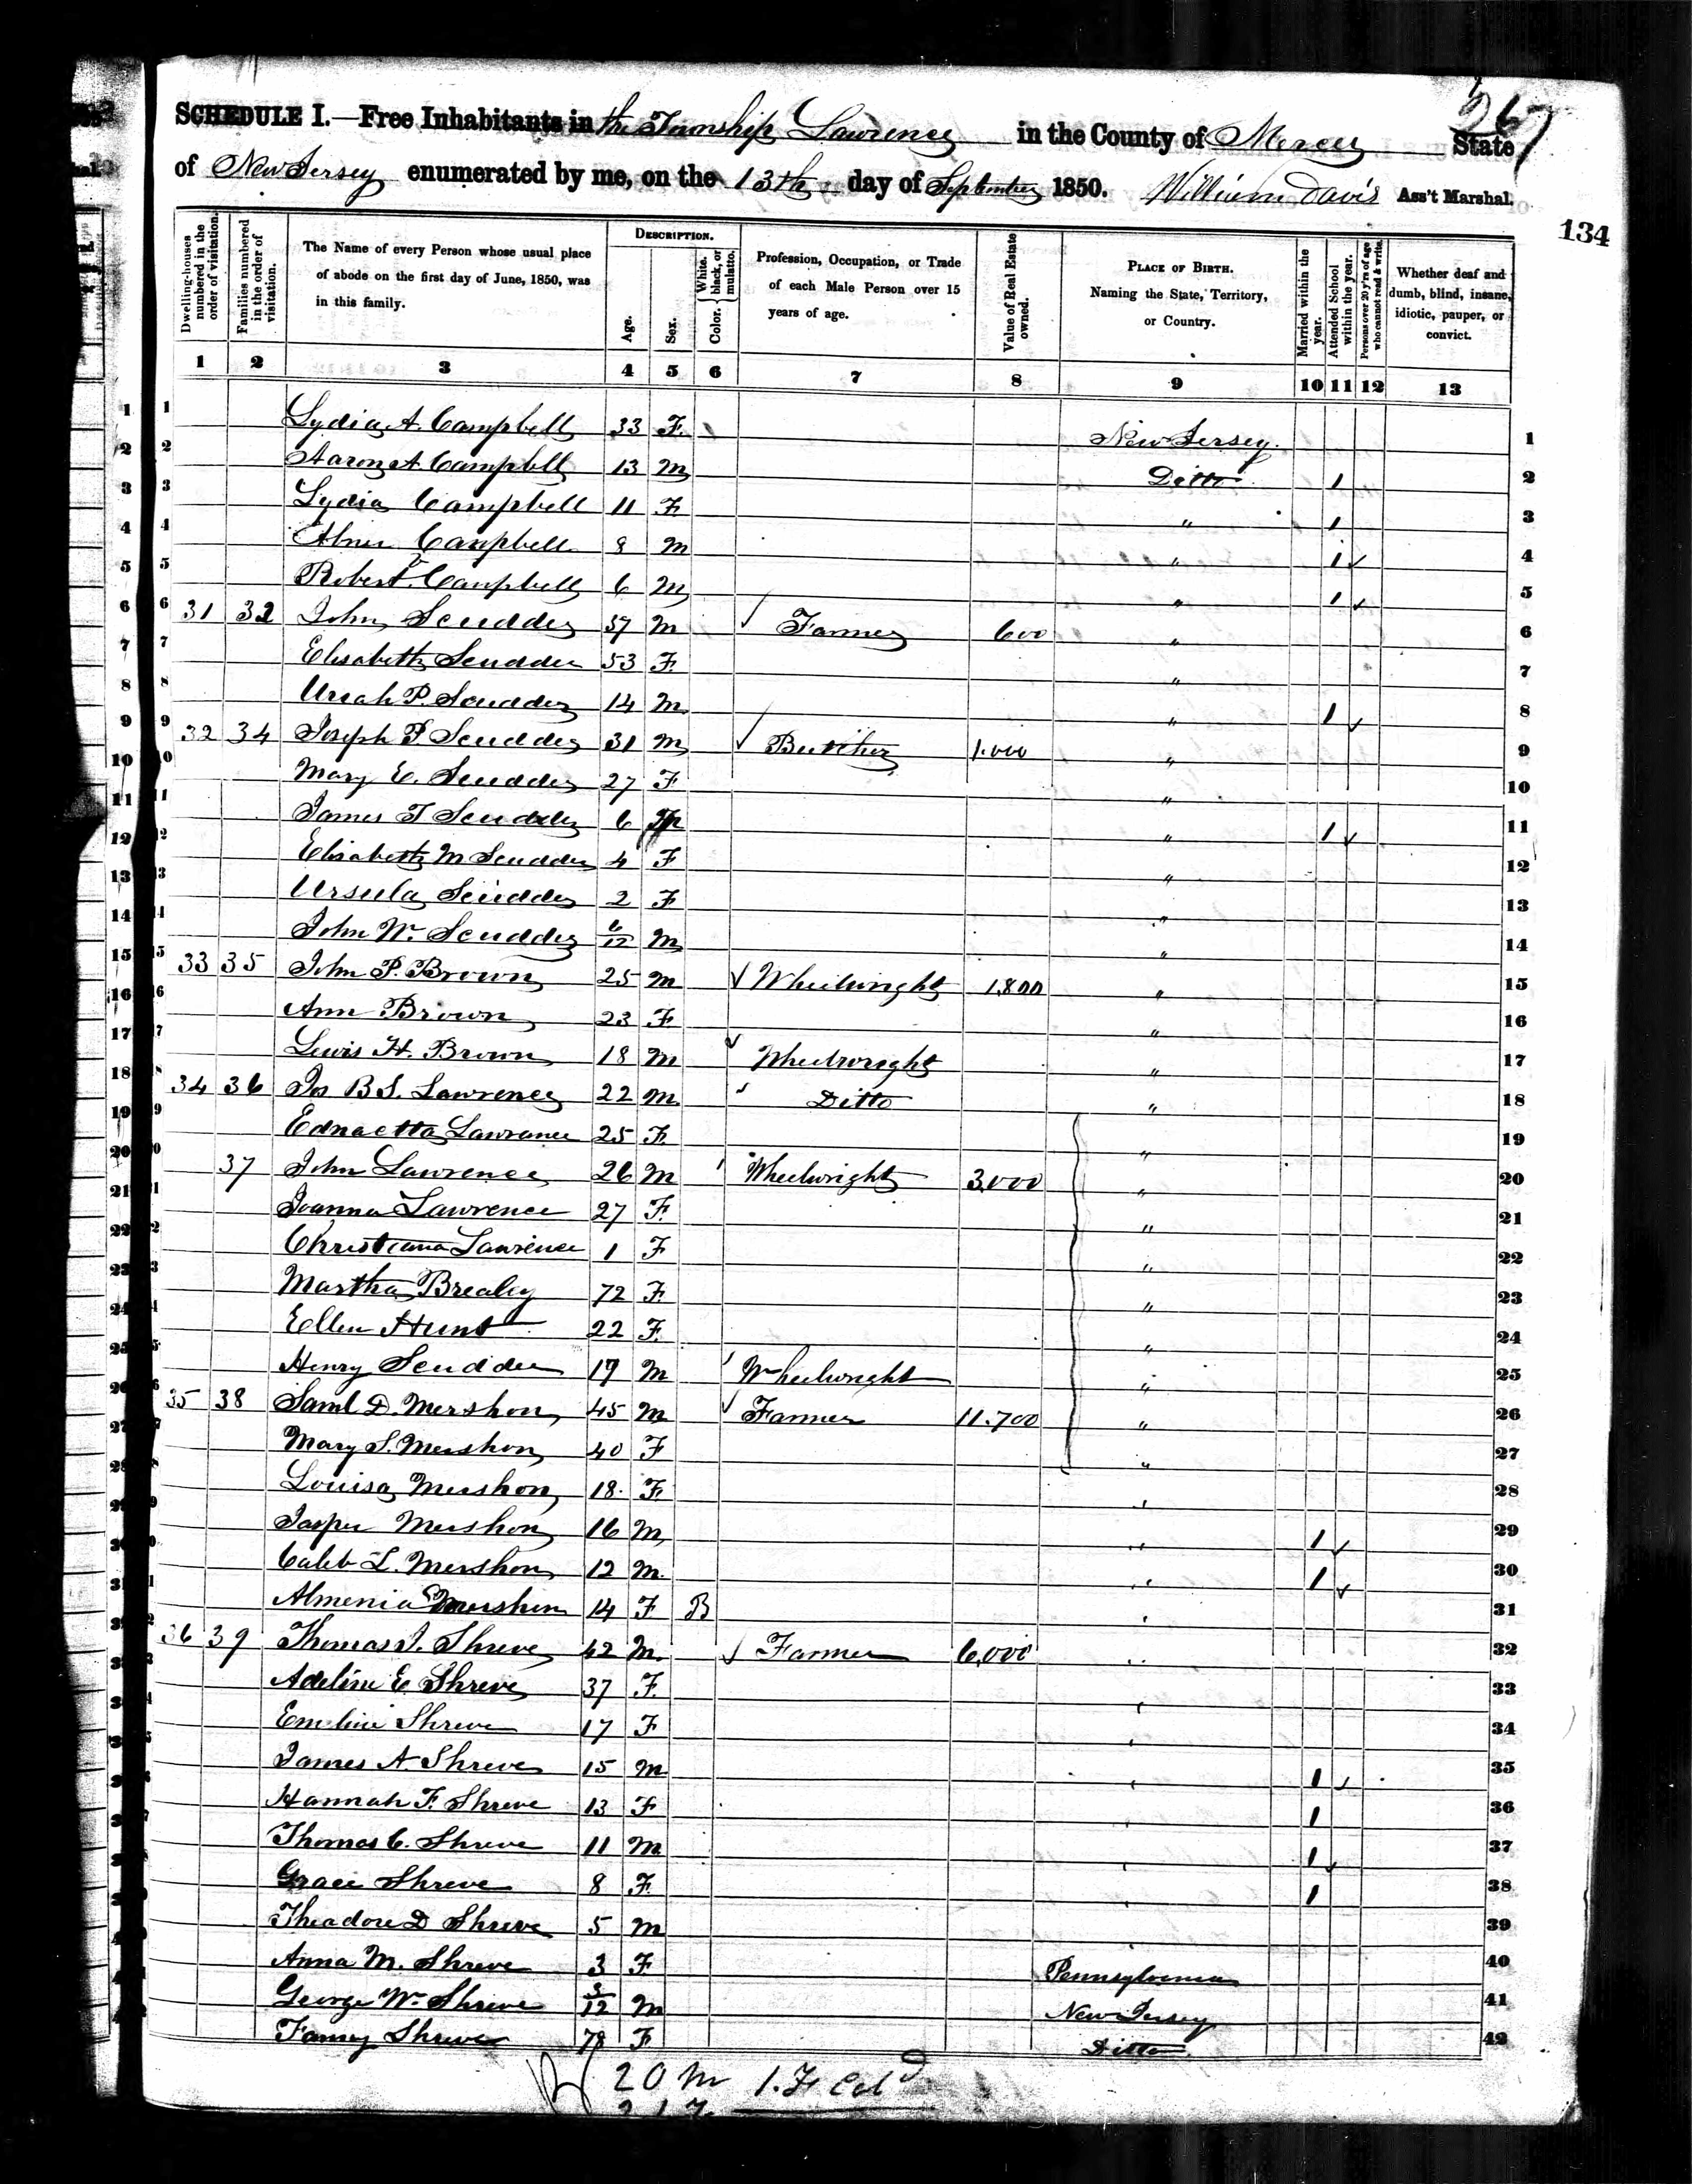 267
SCHEDULE I.—Free Inhabitants in the Township Lawrence in the County of Mercer State
of New Jersey enumerated by me, on the 13th day of September 1850. William Davis Ass't Marshal.
134
Dwelling-houses numbered in the order of visitation. Families numbered in the order of visitation. The Name of every Person whose usual place of abode on the first day of June, 1850, was in this family. DESCRIPTION. Age. Sex. Color. { White, black, or mulatto. Profession, Occupation, or Trade of each Male Person over 15 years of age. Value of Real Estate owned. PLACE OF BIRTH. Naming the State, Territory, or Country. Married within the year. Attended School within the year. Persons over 20 y'rs of age who cannot read & write. Whether deaf and dumb, blind, insane, idiotic, pauper, or convict.
1 2 3 4 5 6 7 8 9 10 11 12 13
1 Lydia A. Campbell 33 F. New Jersey. 1
2 Aaron A Campbell 13 M Ditto 1 2
3 Lydia Campbell 11 F " 1 3
4 Abner Campbell 8 M " 1 ✓ 4
5 Robert Campbell 6 M " 1 ✓ 5
6 31 32 John Scudder 57 M ✓ Farmer 600 " 6
7 Elisabeth Scudder 53 F " 7
8 Uriah P. Scudder 14 M " 1 ✓ 8
9 32 34 Joseph P Scudder 31 M ✓ Butcher 1.000 " 9
10 Mary E. Scudder 27 F " 10
11 James T Scudder 6 M " 1 ✓ 11
12 Elisabeth M Scudder 4 F " 12
13 Ursula Scudder 2 F " 13
14 John W. Scudder 6/12 M " 14
15 33 35 John P. Brown 25 M ✓ Wheelwright 1,800 " 15
16 Ann Brown 23 F " 16
17 Lewis H. Brown 18 M ✓ Wheelwright " 17
18 34 36 Js B S. Lawrence 22 M ✓ Ditto " 18
19 Ednaetta Lawrance 25 F. " 19
20 37 John Lawrence 26 M Wheelwright 3,000 " 20
21 Joanna Lawrence 27 F. " 21
22 Christiana Lawrence 1 F " 22
23 Martha Brealey 72 F. " 23
24 Ellen Hunt 22 F. " 24
25 Henry Scudder 19 M Wheelwright " 25
26 35 38 Saml D. Mershon 45 M ✓ Farmer 11.700 " 26
27 Mary S. Mershon 40 F " 27
28 Louisa Mershon 18. F. " 28
29 Jasper Mershon 16 M " 1 ✓ 29
30 Caleb L. Mershon 12 M. " 1 ✓ 30
31 Almenia Mershon 14 F B " 31
32 36 39 Thomas J. Shreve 42 M. ✓ Farmer 6,000 " 32
33 Adeline E. Shreve 37 F. " 33
34 Emeline Shreve 17 F " 34
35 James A. Shreve 15 M " 1 ✓ 35
36 Hannah F. Shreve 13 F " 1 36
37 Thomas C. Shreve 11 M " 1 ✓ 37
38 Grace Shreve 8 F. " 1 38
39 Theadore D Shreve 5 M 39
40 Anna M. Shreve 3 F Pennsylvenia 40
41 George W. Shreve 3/12 M New Jersey 41
42 Fanny Shreve 78 F Ditto 42
20 M 1. F Cold
21 F